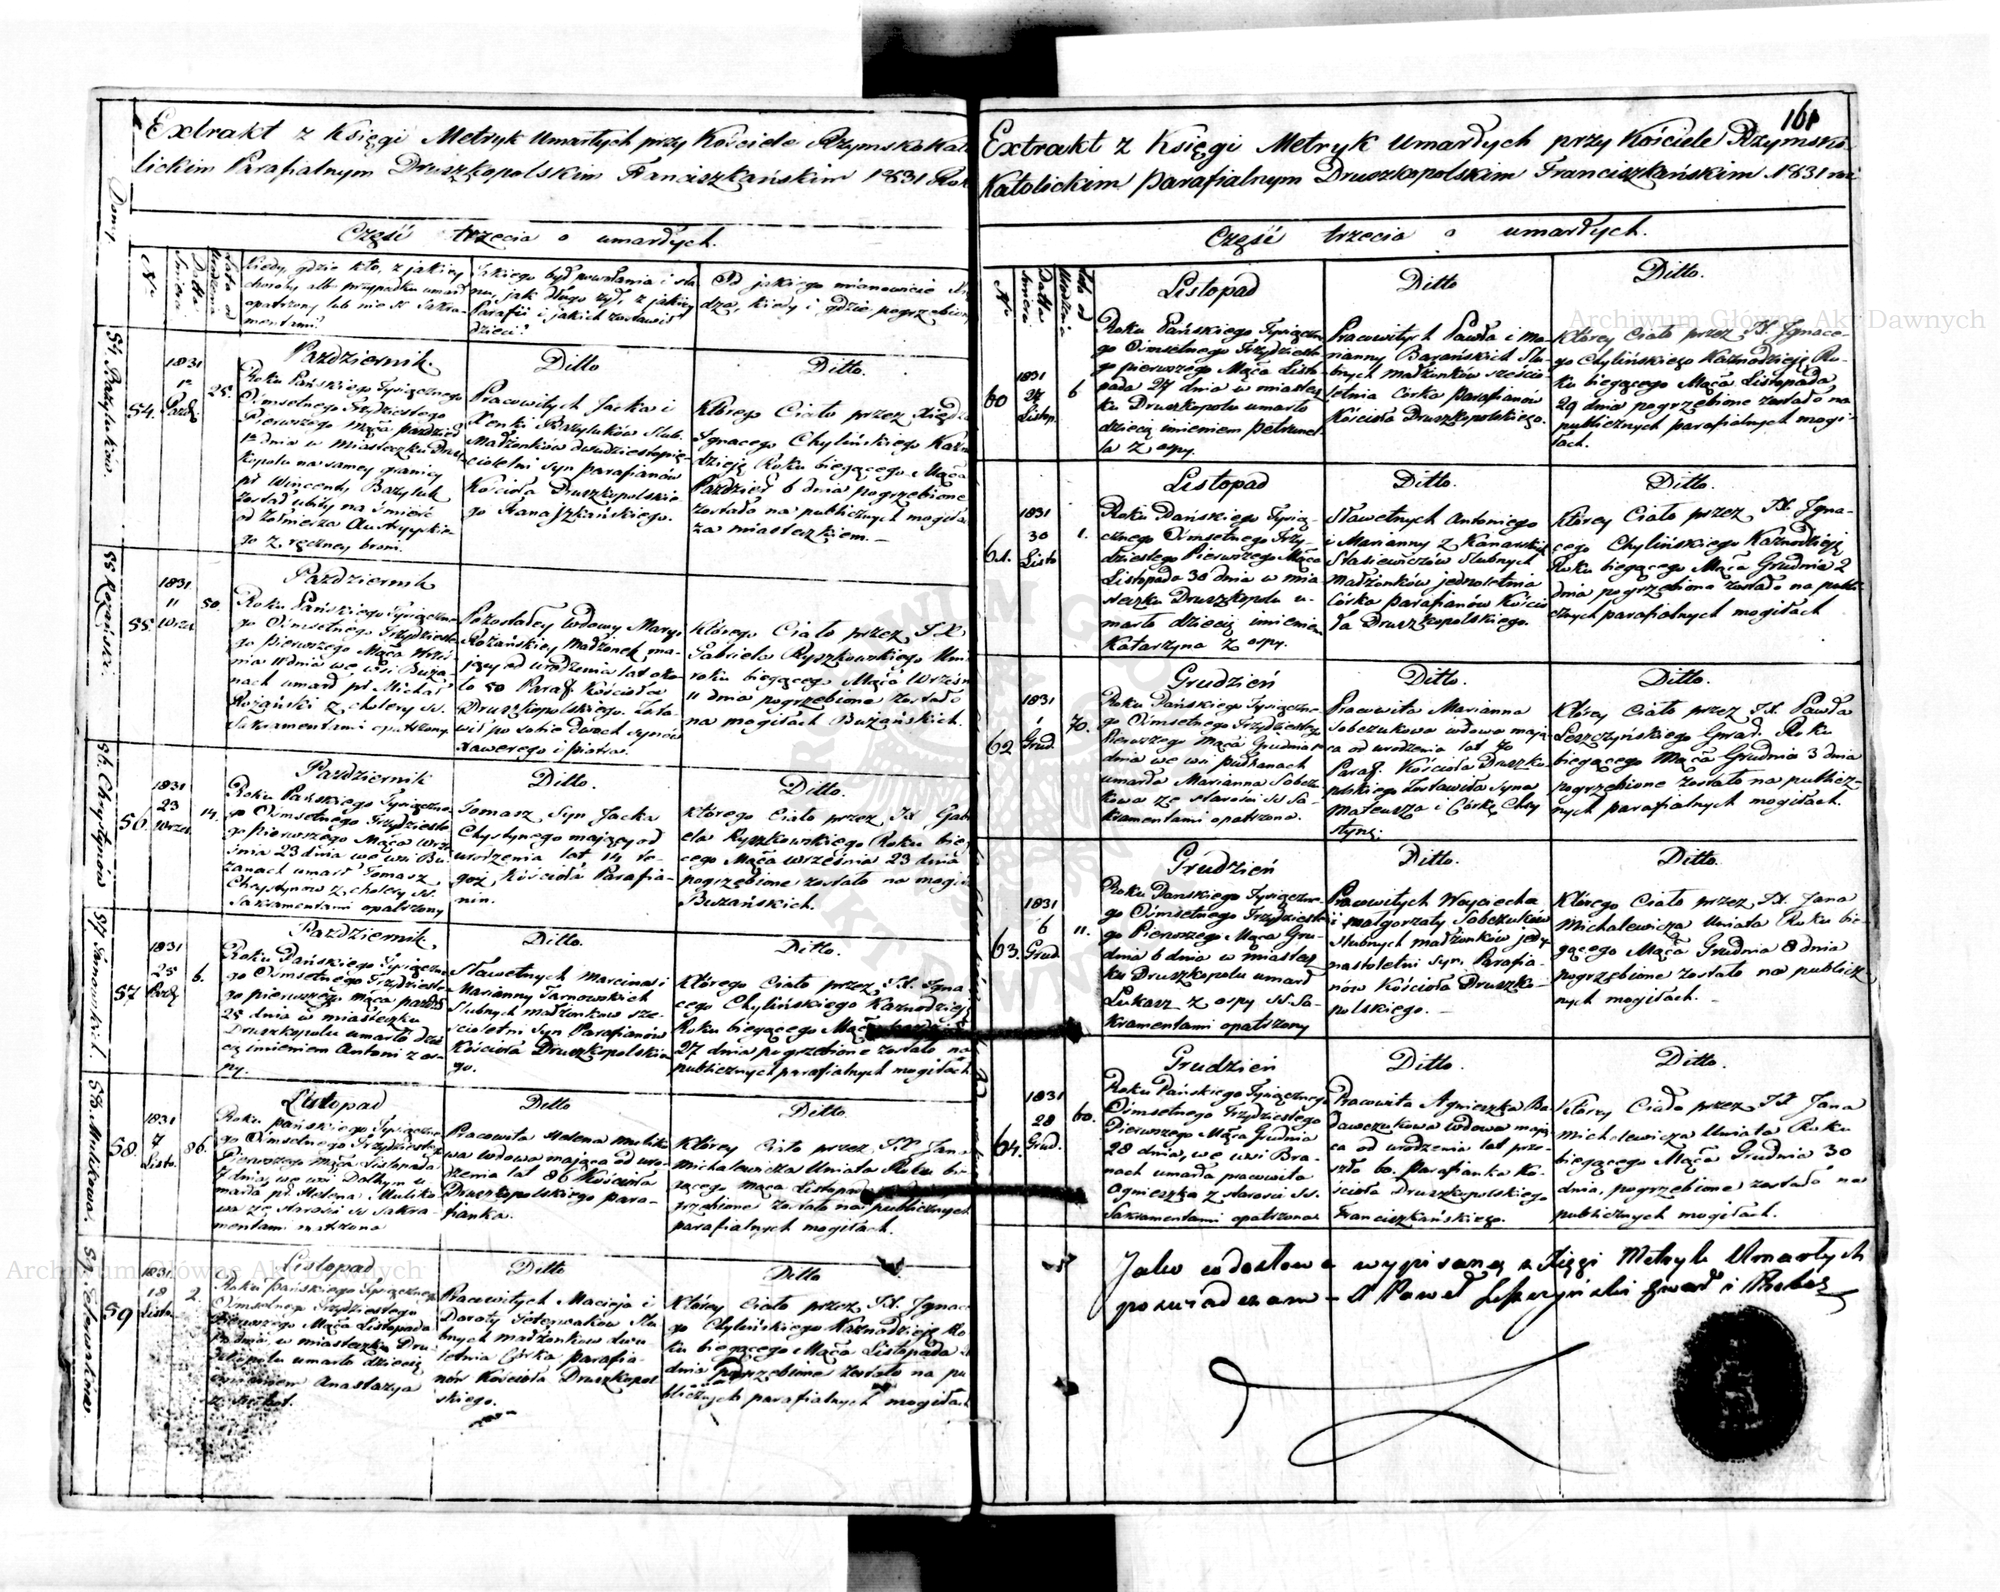 161
Extrakt z Księgi Metryk Umarłych przy Kościele Rzymsko Kato
lickim Parafialnym Druszkopolskim Franciszkańskim 1831 Roku
Część trzecia o umarłych.
Domy
Nr
Datta Śmierci
Lata od Urodzenia
Kiedy, gdzie kto, z jakiey
choroby albo przypadku umarł
opatrzony lub nie SS. Sakra-
mentami?
Jakiego był powołania i sta-
nu, jak długo żył, z jakiey
Parafii i jakich zostawił
dzieci?
Od jakiego mianowicie
dza, kiedy i gdzie pogrzebion
54. Bazylukow.
54.
1831
1°
Paźdź
25.
Październik.
Roku Pańskiego Tysiącznego
Ośmsetnego Trzydziestego
Pierwszego Mąca Paździer
1° dnia w Miasteczku Drusz
kopolu na samey granicy
pt Wincenty Bazyluk
został ubity na śmierć
od Żołnierza Austryyackie
go z ręczney broni.
Ditto
Pracowitych Jacka i
Xenki Bazyluków Slub.
Małżonków dwudziestopię-
cioletni syn parafianów
Kościoła Druszkopolskie
go Franciszkańskiego.
Ditto.
Którego Ciało przez Xiędza
Ignacego Chylińskiego Kazno
dzieję Roku biegącego Mąca
Paździer 6 dnia pogrzebione
zostało na publicznych mogiłach
za miasteczkiem.
55 Rożański.
55.
1831
11
Wrzes
50.
Październik
Roku Pańskiego Tysiączne
go Ośmsetnego Trzydzieste
go pierwszego Mąca Wrześ
nia 11 dnia we wsi Buża-
nach umarł pt Michał
Rożański z cholery SS.
Sakramentami opatrzony
Pozostałey wdowy Maryi
Rożańskiey Małżonek ma-
jący od urodzenia lat oko-
ło 50 Paraf. Kościoła
Druszkopolskiego. Zosta-
wił po sobie dwóch synów
Xawerego i Piotra.
Którego Ciało przez JX
Gabriela Ryszkowskiego Uni
roku biegącego Mąca Wrześn
11 dnia pogrzebione zostało
na mogiłach Bużańskich.
56. Chrystynow
56.
1831
23
Wrzes
14.
Październik
Roku Pańskiego Tysiączne
go Ośmsetnego Trzydzieste
go pierwszego Mąca Wrze
śnia 23 dnia we wsi Bu
żanach umarł Tomasz
Chrystynow z cholery SS.
Sakramentami opatrzony
Ditto.
Tomasz Syn Jacka
Chrystynego mający od
urodzenia lat 14 te-
goż Kościoła Parafia-
nin.
Ditto.
Którego Ciało przez JX Gabri
ela Ryszkowskiego Roku bie
cego Mąca Września 23 dnia
pogrzebione zostało na mogił
Bużańskich.
57 Tarnowski.
57
1831
25
Paźdź
6.
Październik,
Roku Pańskiego Tysiączne
go Ośmsetnego Trzydzieste
go pierwszego Mąca Paźdź
25 dnia w miasteczku
Druszkopolu umarło dzie
cię imieniem Antoni z os-
py.
Ditto.
Sławetnych Marcina i
Marianny Tarnowskich
Slubnych Małżonkow sze-
ścioletni syn Parafianów
Kościoła Druszkopolskie
go.
Ditto.
Którego Ciało przez JX. Igna
cego Chylińskiego Kaznodzieję
Roku biegącego Mąca
27 dnia pogrzebione zostało na
publicznych parafialnych mogiłach
58. Mulikowa.
58.
1831
7
Listo.
86.
Listopad
Roku pańskiego Tysiączne
go Ośmsetnego Trzydziestego
Pierwszego Mąca Listopada
7 dnia, we wsi Dolhym u
marła pt. Helena Muliko
wa ze starości SS Sakra-
mentami opatrzona
Ditto
Pracowita Helena Muliko
wa wdowa mająca od uro-
dzenia lat 86 Kościoła
Druszkopolskiego para-
fianka.
Ditto.
Którey Ciało przez JX. Jana
Michalewicza Uniata Roku bie
gącego Mąca Listopada
grzebione zostało na publicznych
parafialnych mogiłach.
59
1831
18
Listo
2.
Listopad
Roku Pańskiego Tysiącznego
Ośmsetnego Trzydziestego
Pierwszego Mąca Listopada
dnia w miasteczku Dru-
szkopolu umarło dziecię
imieniem Anastazya
z suchot.
Ditto
Pracowitych Macieja i
Doroty Slu-
bnych małżonkow dwu
letnia Córka parafia-
nów Kościoła Druszkopol
skiego.
Ditto
Którey Ciało przez JX. Ignace
go Chylińskiego Kaznodzieję Ro
ku biegącego Mąca Listopada
dnia pogrzebione zostało na pu
blicznych parafialnych mogiłach
Extrakt z Księgi Metryk Umarłych przy Kościele Rzymsko
Katolickim Parafialnym Druszkopolskim Franciszkańskim 1831 roku
Część trzecia o umarłych.
Nr
Datta Śmierci
Lata od Urodzenia
60
1831
27
Listop.
6
Listopad
Roku Pańskiego Tysiączne
go Ośmsetnego Trzydzieste
go pierwszego Mąca Listo
pada 27 dnia w miastecz
ku Druszkopolu umarło
dziecię imieniem Petrunel
la z ospy.
Ditto
Pracowitych Pawła i Ma-
rianny Barańskich Slu-
bnych małżonków sześcio
letnia córka parafianów
Kościoła Druszkopolskiego.
Ditto.
Którey Ciało przez JX. Ignace-
go Chylińskiego Kaznodzieję Ro-
ku biegącego Mąca Listopada
29 dnia pogrzebione zostało na
publicznych parafialnych mogi-
łach.
61.
1831
30
Listo
1.
Listopad
Roku Pańskiego Tysią-
cznego Ośmsetnego Trzy-
dziestego Pierwszego Mąca
Listopada 30 dnia w mia
steczku Druszkopolu u-
marło dziecię imieniem
Katarzyna z ospy.
Ditto.
Sławetnych Antoniego
i Marianny z Kanarskich
Stasiewiczów Slubnych
Małżonków jednoletnia
Córka Parafianów Kościo
ła Druszkopolskiego.
Ditto.
Którey Ciało przez JX. Igna-
cego Chylińskiego Kaznodzieję
Roku biegącego Mąca Grudnia 2
dnia pogrzebione zostało na publi
cznych parafialnych mogiłach
62
1831
1
Grud.
70.
Grudzień
Roku Pańskiego Tysiączne-
go Ośmsetnego Trzydziestego
Pierwszego Mąca Grudnia 1°
dnia we wsi Pułhanach
umarła Marianna Sobczu
kowa ze starości SS Sa-
kramentami opatrzona.
Ditto.
Pracowita Marianna
Sobczukowa wdowa mają
ca od urodzenia lat 70
Paraf. Kościoła Druszko
polskiego Zostawiła Syna
Mateusza i Córkę Chry
stynę.
Ditto.
Którey Ciało przez JX. Pawła
Leszczyńskiego Gward. Roku
biegącego Mąca Grudnia 3 dnia
pogrzebione zostało na publicz
nych parafialnych mogiłach.
63.
1831
6
Grud
11.
Grudzień
Roku Pańskiego Tysiączne-
go Ośmsetnego Trzydzieste
go Pierwszego Mąca Gru-
dnia 6 dnia w miastecz
ku Druszkopolu umarł
Łukasz z ospy SS. Sa-
kramentami opatrzony
Ditto.
Pracowitych Woyciecha
i Małgorzaty Sobczuków
slubnych małżonków jedy
nastoletni syn, Parafia-
nów Kościoła Druszko-
polskiego.
Ditto.
Którego Ciało przez JX. Jana
Michalewicza Uniata Roku bie-
gącego Mąca Grudnia 8 dnia
pogrzebione zostało na publicz
nych mogiłach.
64.
1831
28
Grud.
60.
Grudzień
Roku Pańskiego Tysiącznego
Ośmsetnego Trzydziestego
Pierwszego Mąca Grudnia
28 dnia, we wsi Bra-
nach umarła pracowita
Agnieszka z starości SS.
Sakramentami opatrzona
Ditto.
Pracowita Agnieszka Ba
dawczukowa wdowa mają
ca od urodzenia lat prze-
szło 60. Parafianka Ko-
ścioła Druszkopolskiego
Franciszkańskiego.
Ditto.
Którey Ciało przez JX Jana
Michalewicza Uniata Roku
biegącego Mąca Grudnia 30
dnia, pogrzebione zostało na
publicznych mogiłach.
Jako co do słowa wypisaną z Xięgi Metryk Umarłych
poświadczam X Paweł Leszczyński Gward i Probosz
Archiwum Główne Akt Dawnych
Archiwum Główne Akt Dawnych